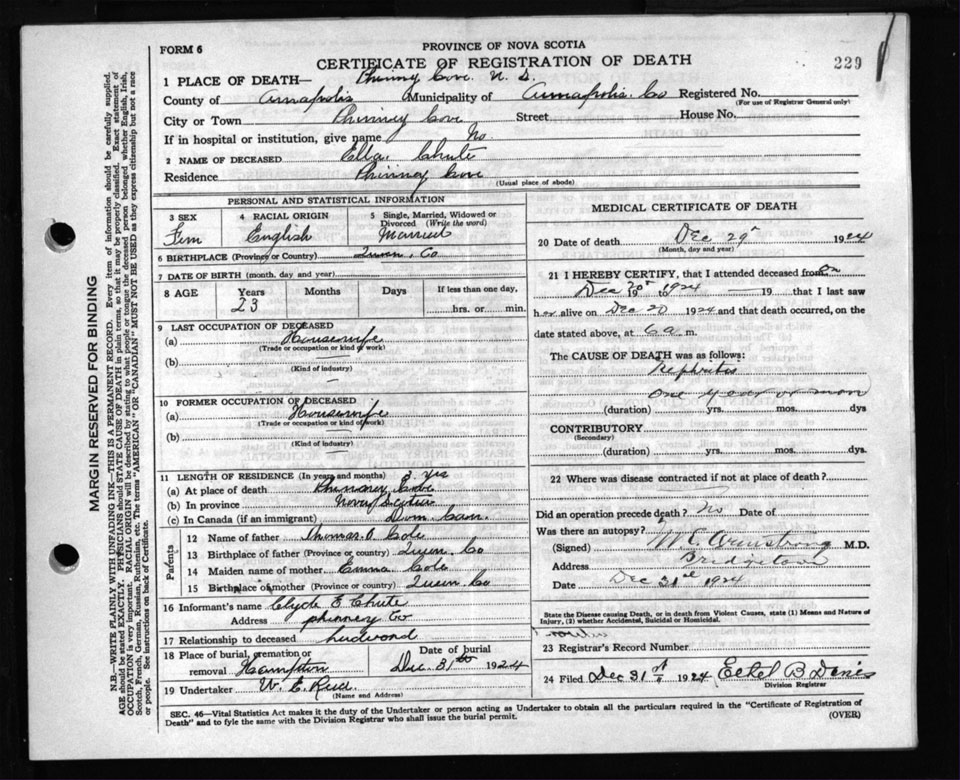 FORM 6
PROVINCE OF NOVA SCOTIA
CERTIFICATE OF REGISTRATION OF DEATH
229
1 PLACE OF DEATH— Phinny Cove N. S.
County of Annapolis Municipality of Annapolis Co Registered No.
(For use of Registrar General only)
City or Town Phinney Cove Street House No.
If in hospital or institution, give name No
2 NAME OF DECEASED Ella Chute
Residence Phinney Cove
(Usual place of abode)
PERSONAL AND STATISTICAL INFORMATION
3 SEX Fem
4 RACIAL ORIGIN English
5 Single, Married, Widowed or Divorced (Write the word) Married
6 BIRTHPLACE (Province or Country) Queen. Co
7 DATE OF BIRTH (month, day and year)
8 AGE Years Months Days If less than one day,
23 hrs. or min.
9 LAST OCCUPATION OF DECEASED
(a) Housewife
(Trade or occupation or kind of work)
(b)
(Kind of industry)
10 FORMER OCCUPATION OF DECEASED
(a) Housewife
(Trade or occupation or kind of work)
(b)
(Kind of industry)
11 LENGTH OF RESIDENCE (In years and months) 3 yrs
(a) At place of death Phinney Cove
(b) In province Nova Scotia
(c) In Canada (if an immigrant) Dom Can.
Parents
12 Name of father Thomas. O. Cole
13 Birthplace of father (Province or country) Queen. Co
14 Maiden name of mother Emma Cole
15 Birthplace of mother (Province or country) Queen Co
16 Informant's name Clyde E Chute
Address phinney Co
17 Relationship to deceased husbond
18 Place of burial, cremation or removal Hampton
Date of burial Dec. 31st 1924
19 Undertaker W. E. Reid
(Name and Address)
MEDICAL CERTIFICATE OF DEATH
20 Date of death Dec 29th 1924
(Month, day and year)
21 I HEREBY CERTIFY, that I attended deceased from on
Dec 20th 1924 19 — 19 that I last saw
her alive on Dec 20 1924 and that death occurred, on the
date stated above, at 6 a m.
The CAUSE OF DEATH was as follows:
Nephritis
One year or more
(duration) yrs. mos. dys
CONTRIBUTORY
(Secondary)
(duration) yrs. mos. dys.
22 Where was disease contracted if not at place of death?
Did an operation precede death? No Date of
Was there an autopsy?
(Signed) M. E. Armstrong M.D.
Address Bridgetown
Date Dec 31st 1924
State the Disease causing Death, or in death from Violent Causes, state (1) Means and Nature of Injury, (2) whether Accidental, Suicidal or Homicidal.
23 Registrar's Record Number
24 Filed Dec 31st 1924 Ethel B Denis
Division Registrar
SEC. 46—Vital Statistics Act makes it the duty of the Undertaker or person acting as Undertaker to obtain all the particulars required in the "Certificate of Registration of
Death" and to fyle the same with the Division Registrar who shall issue the burial permit. (OVER)
MARGIN RESERVED FOR BINDING
N.B.—WRITE PLAINLY WITH UNFADING INK—THIS IS A PERMANENT RECORD. Every item of information should be carefully supplied.
AGE should be stated EXACTLY. PHYSICIANS should STATE CAUSE OF DEATH in plain terms, so that it may be properly classified. Exact statement of
OCCUPATION is very important. RACIAL ORIGIN will be described by stating to what people or tongue the deceased person belonged whether English, Irish,
Scotch, French, German, Russian, Ruthenian, etc. The terms "AMERICAN" or "CANADIAN" MUST NOT BE USED as they express citizenship but not a race
or people. See instructions on back of Certificate.